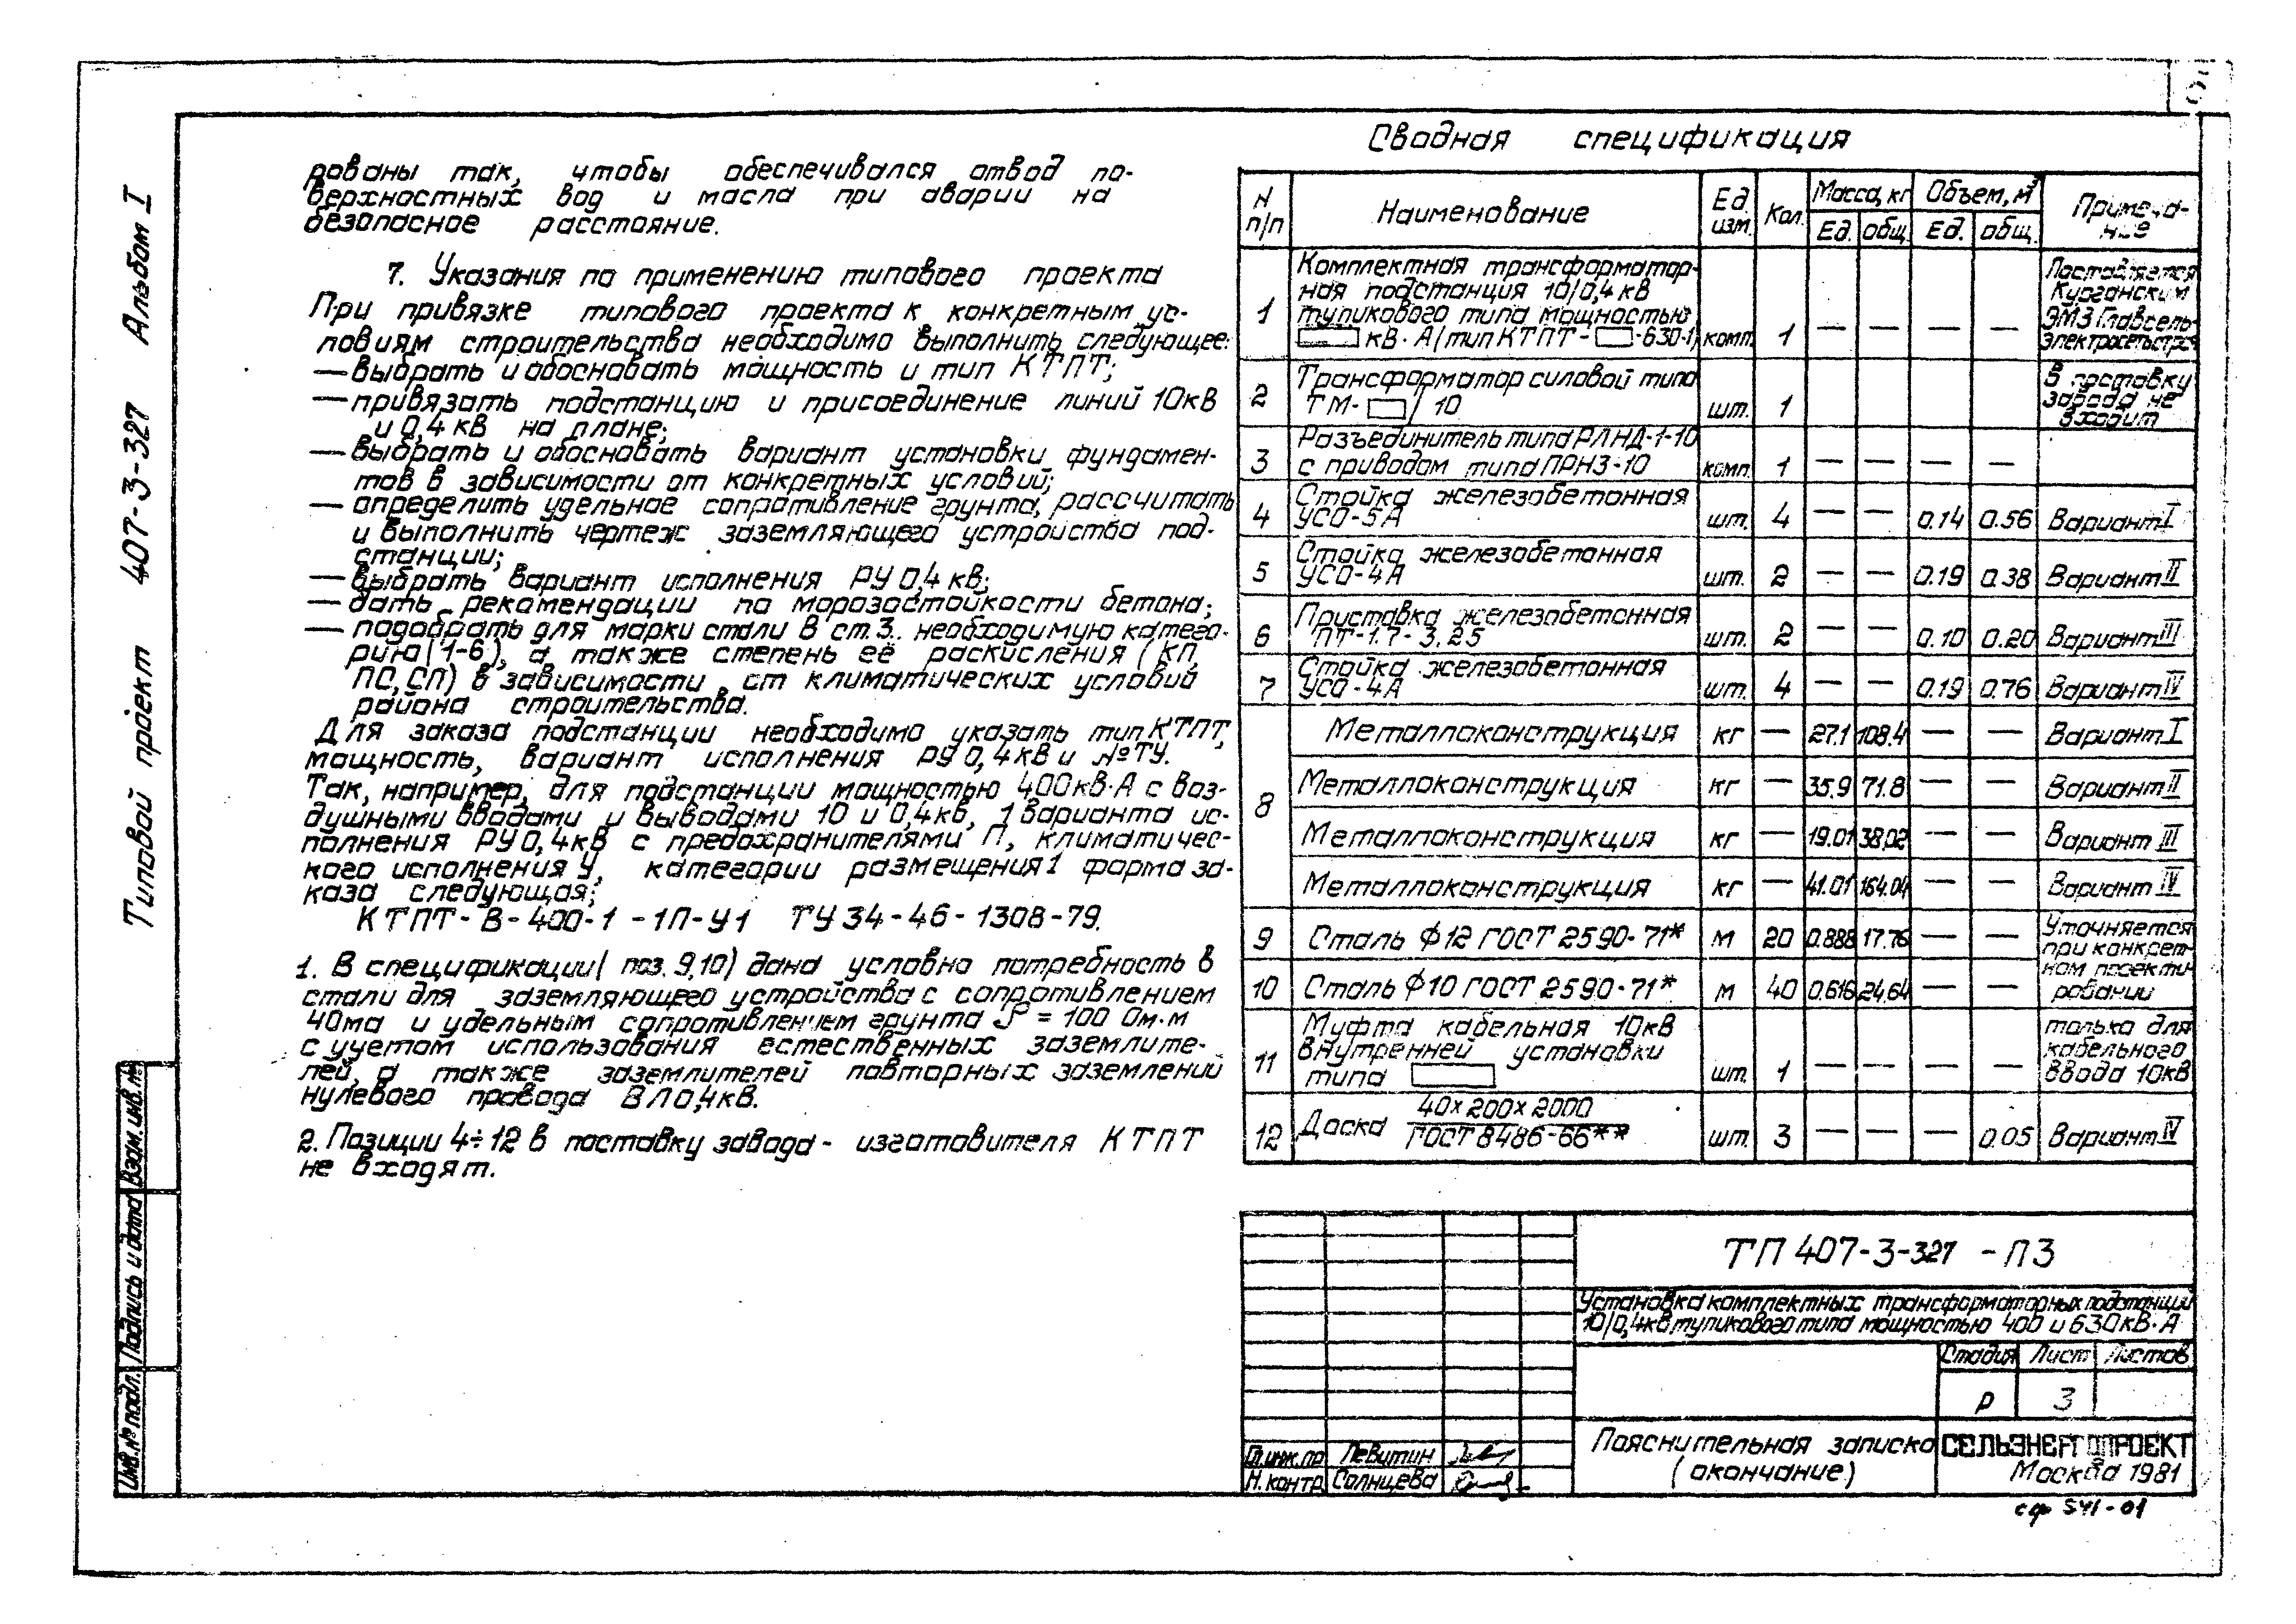 рованы так, чтобы обеспечивался отвод по-
верхностных вод и масла при аварии на
безопасное расстояние.
7. Указания по применению типового проекта
При привязке типового проекта к конкретным ус-
ловиям строительства необходимо выполнить следующее:
— выбрать и обосновать мощность и тип КТПТ;
— привязать подстанцию и присоединение линий 10кВ
и 0,4 кВ на плане;
— выбрать и обосновать вариант установки фундамен-
тов в зависимости от конкретных условий;
— определить удельное сопротивление грунта, рассчитать
и выполнить чертеж заземляющего устройства под-
станции;
— выбрать вариант исполнения РУ 0,4 кВ;
— дать рекомендации по морозостойкости бетона;
— подобрать для марки стали В ст.3.. необходимую катего-
рию (1-6), а также степень её раскисления (КП,
ПС, СП) в зависимости от климатических условий
района строительства.
Для заказа подстанции необходимо указать тип КТПТ,
мощность, вариант исполнения РУ 0,4кВ и №ТУ.
Так, например, для подстанции мощностью 400кВ·А с воз-
душными вводами и выводами 10 и 0,4кВ, 1 варианта ис-
полнения РУ 0,4кВ с предохранителями П, климатичес-
кого исполнения У, категории размещения 1 форма за-
каза следующая:
КТПТ-В-400-1-1П-У1 ТУ 34-46-1308-79.
1. В спецификации (поз. 9,10) дана условно потребность в
стали для заземляющего устройства с сопротивлением
4Ома и удельным сопротивлением грунта ρ = 100 Ом·м
с учетом использования естественных заземлите-
лей, а также заземлителей повторных заземлений
нулевого провода ВЛ 0,4кВ.
2. Позиции 4÷12 в поставку завода- изготовителя КТПТ
не входят.
Сводная спецификация
N п/п Наименование Ед. изм. Кол. Масса, кг Ед. общ. Объем, м³ Ед. общ. Примеча-
ние
1 Комплектная трансформатор-
ная подстанция 10/0,4 кВ
тупикового типа мощностью
кВ·А (тип КТПТ- -630-1) комп. 1 — — — — Поставляется
Курганским
ЭМЗ Главсель-
электросетьстроя
2 Трансформатор силовой типа
ТМ- / 10 шт. 1 В поставку
завода не
входит
3 Разъединитель типа РЛНД-1-10
с приводом типа ПРНЗ-10 комп. 1 — — — —
4 Стойка железобетонная
УСО-5А шт. 4 — — 0.14 0.56 Вариант I
5 Стойка железобетонная
УСО-4А шт. 2 — — 0.19 0.38 Вариант II
6 Приставка железобетонная
ПТ-1.7-3.25 шт. 2 — — 0.10 0.20 Вариант III
7 Стойка железобетонная
УСО-4А шт. 4 — — 0.19 0.76 Вариант IV
8 Металлоконструкция кг — 27.1 108.4 — — Вариант I
Металлоконструкция кг — 35.9 71.8 — — Вариант II
Металлоконструкция кг — 19.01 38.02 — — Вариант III
Металлоконструкция кг — 41.01 164.04 — — Вариант IV
9 Сталь Ф12 ГОСТ 2590-71* м 20 0.888 17.76 — — Уточняется
при конкрет-
ном проекти-
ровании
10 Сталь Ф10 ГОСТ 2590-71* м 40 0.616 24.64 — —
11 Муфта кабельная 10кВ
внутренней установки
типа шт. 1 — — — — только для
кабельного
ввода 10кВ
12 Доска 40×200×2000
ГОСТ 8486-66** шт. 3 — — — 0.05 Вариант IV
ТП 407-3-327 -ПЗ
Установка комплектных трансформаторных подстанций
10/0,4кВ тупикового типа мощностью 400 и 630кВ·А
Стадия Лист Листов
Р 3
Гл.инж.пр Левитин
Н.контр. Солнцева
Пояснительная записка
(окончание)
СЕЛЬЭНЕРГОПРОЕКТ
Москва 1981
сф 541-01
Типовой проект 407-3-327 Альбом I
Инв.№ подл. Подпись и дата Взам.инв.№